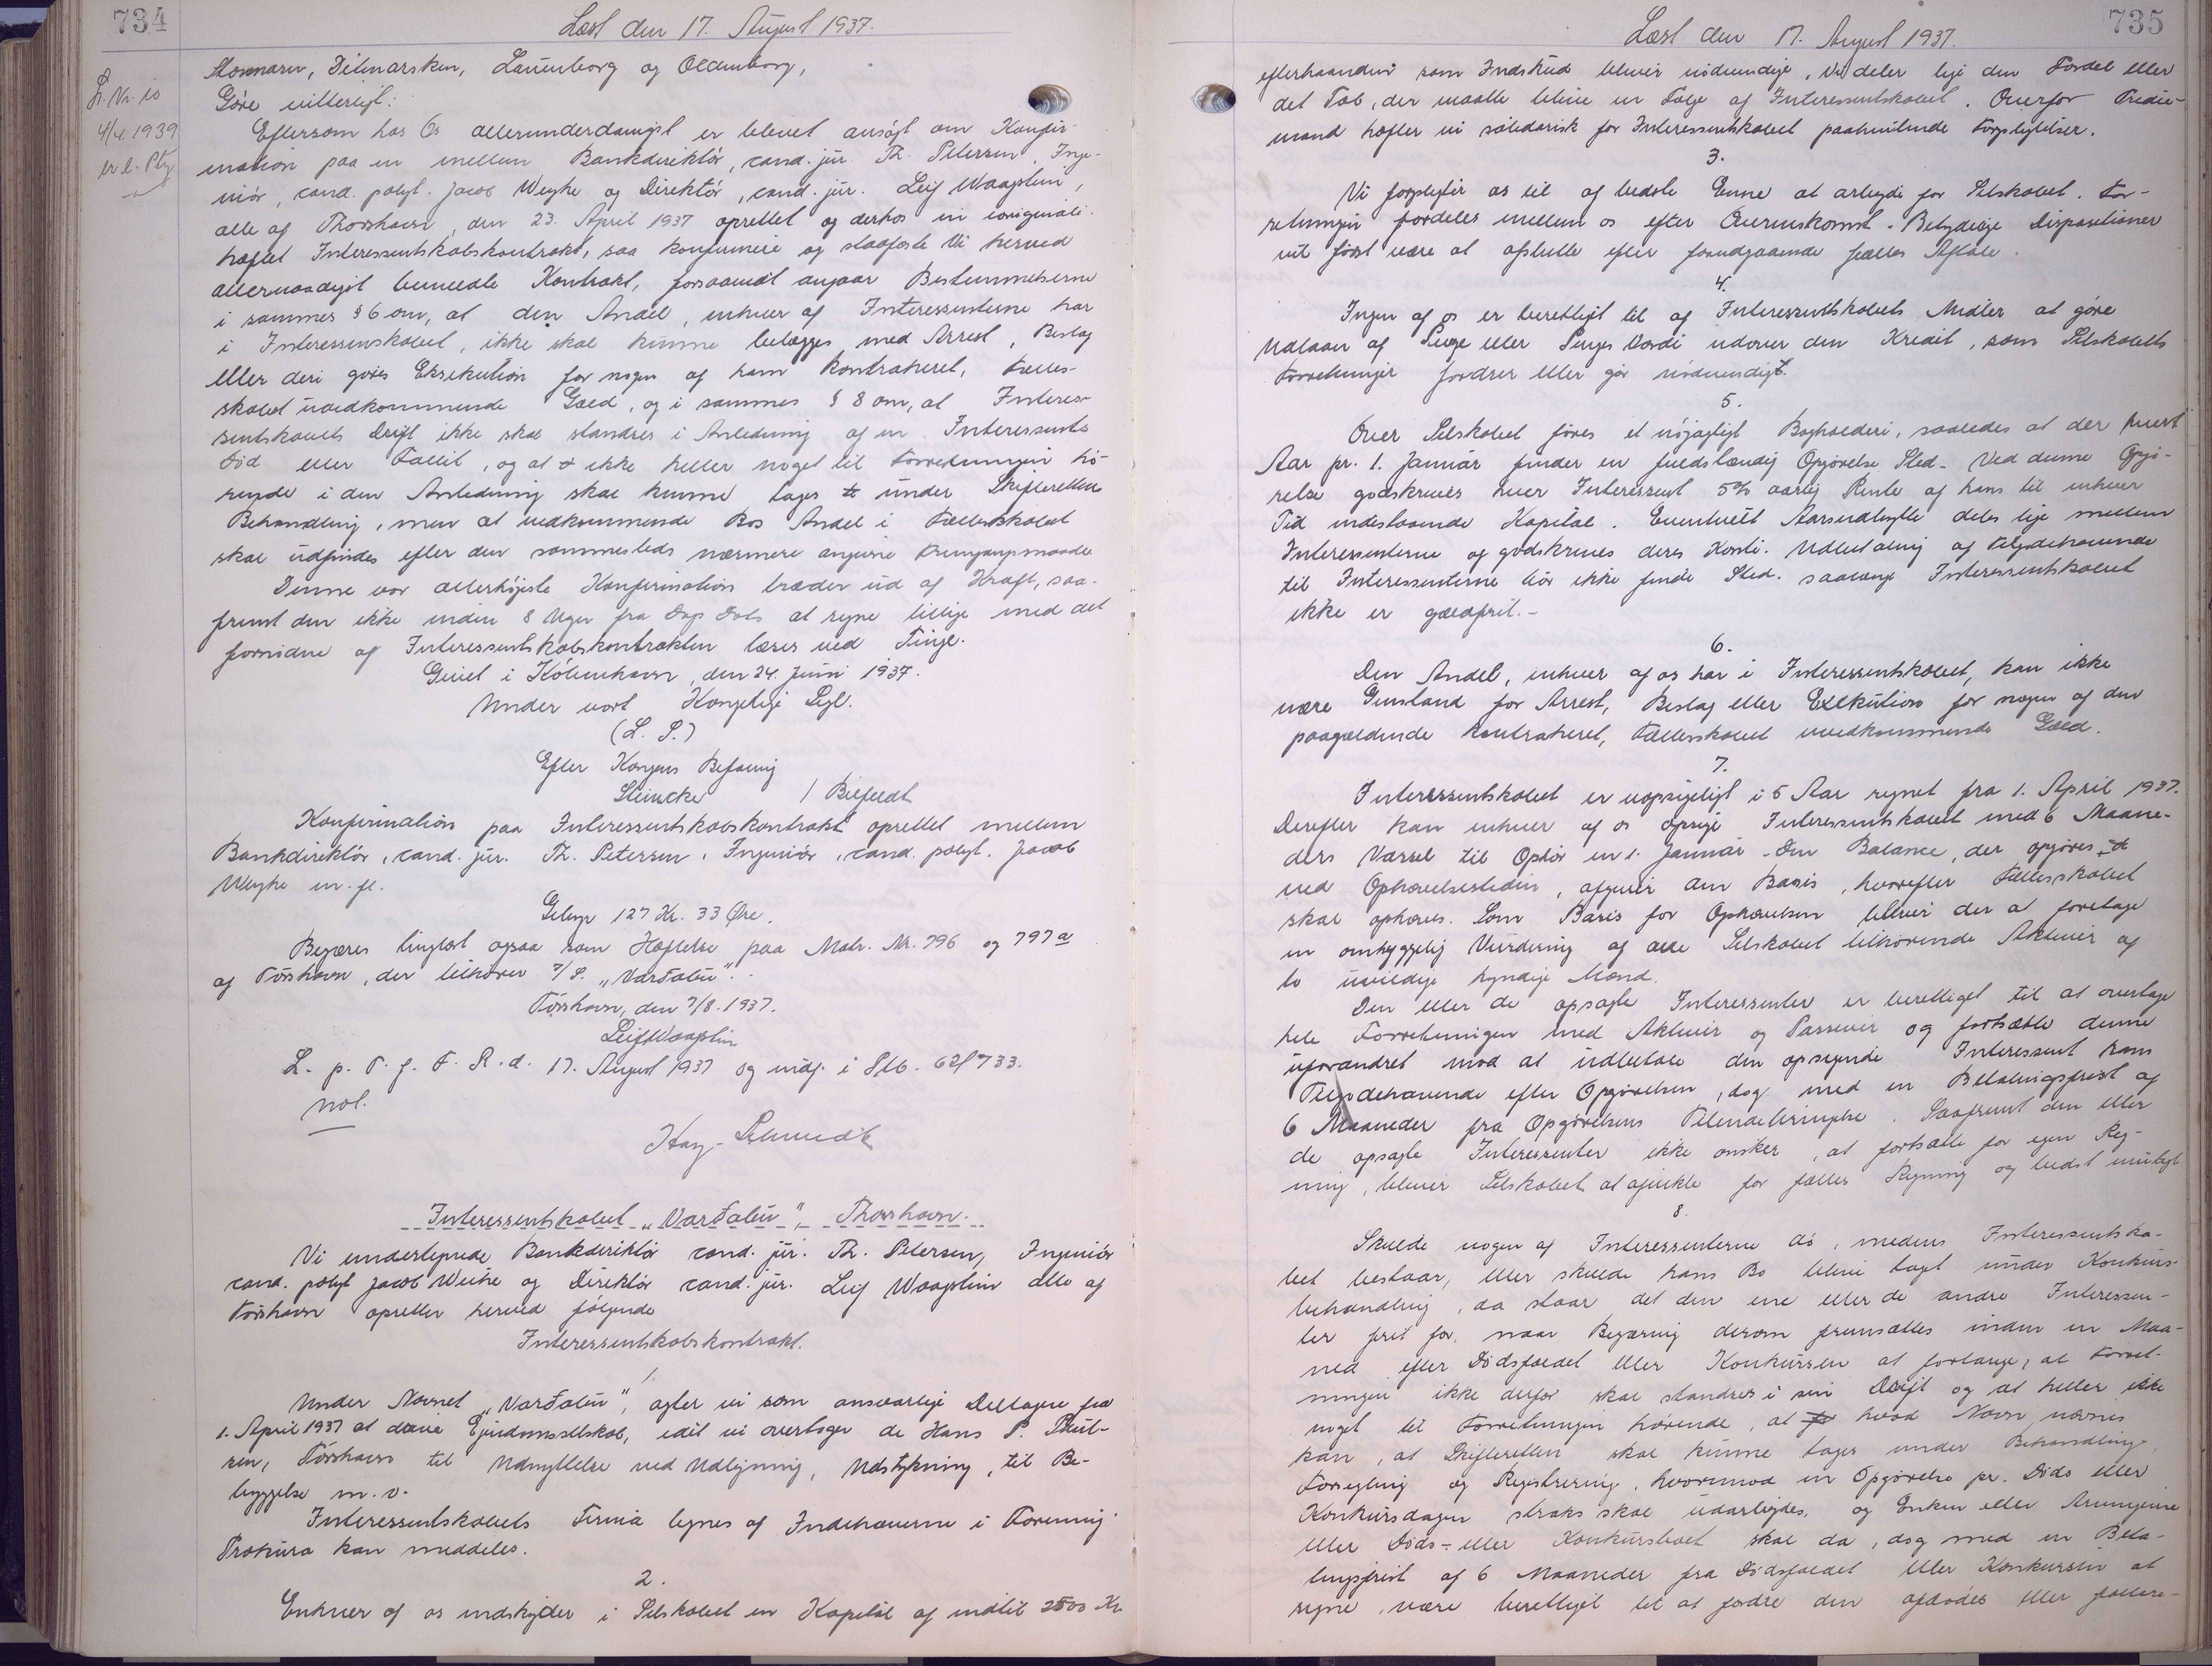 734
Læst den 17. August 1937.
L. Nr. 10
4/4. 1939
Stormarn, Ditmarsken, Lauenborg og Oldenborg,
Göre vitterligt:
Eftersom hos Os allerunderdanigst er blevet ansögt om Konfir-
mation paa en mellem Bankdirektör, cand. jur. Th. Petersen, Inge-
niör, cand. polyt. Jacob Weyhe og Direktör, cand. jur. Leif Waagstein,
alle af Thorshavn, den 23. April 1937 oprettet og derhos in originali
hæftet Interessentskabskontrakt, saa konfirmere og stadfæste Vi herved
allernaadigst bemeldte Kontrakt, forsaavidt angaar Bestemmelserne
i sammes § 6 om, at den Andel, enhver af Interessenterne har
i Interessenskabet, ikke skal kunne belægges med Arrest, Beslag
eller deri göres Eksekution for nogen af ham kontraheret, Fælles-
skabet uvedkommende Gæld, og i sammes § 8 om, at Interes-
sentskabets Drift ikke skal standses i Anledning af en Interessents
Död eller Fallit, og at ikke heller noget til Forretningen hö-
rende i den Anledning skal kunne tages under Skifterettens
Behandling, men at vedkommende Bos Andel i Fællesskabet
skal udfindes efter den sammesteds nærmere angivne Fremgangsmaade
Denne vor allerhöjeste Konfirmation træder ud af Kraft, saa-
fremt den ikke inden 8 Uger fra Dags Dato at regne tillige med det
fornödne af Interessentskabskontrakten læses ved Tinge.
Givet i Köbenhavn, den 24. Juni 1937.
Under vort Kongelige Segl.
(L. S.)
Efter Kongens Befaling
Steincke / Bilfeldt
Konfirmation paa Interessentskabskontrakt oprettet mellem
Bankdirektör, cand. jur. Th. Petersen, Ingeniör, cand. polyt. Jacob
Weyhe m. fl.
Gebyr 127 Kr. 33 Øre.
Begæres tinglæst ogsaa som Hæftelse paa Matr. Nr. 796 og 797 a
af Tórshavn, der tilhører I/S. "Varðatún".
Tórshavn, den 7/8. 1937.
Leif Waagstein
L. p. T. f. F. R. d. 17. August 1937 og indf. i Ptb. 62/733.
not.
Hag-Schmidt
Interessentskabet "Varðatún", Thorshavn.
Vi undertegnede Bankdirektör cand. jur. Th. Petersen, Ingeniör
cand. polyt Jacob Weihe og Direktör cand. jur. Leif Waagstein alle af
Tórshavn opretter herved følgende
Interessentskabskontrakt.
1.
Under Navnet "Varðatún", agter vi som ansvarlige Deltagere fra
1. April 1937 at danne Ejendomsselskab, idet vi overtager de Hans P.
Tórshavn til Udnyttelse ved Udligning, Udstykning, til Be-
byggelse m. v.
Interessentskabets Firma tegnes af Indehaverne i Forening
Prokura kan meddeles.
2.
Enhver af os indskyder i Selskabet en Kapital af indtil 2500 Kr.
735
Læst den 17. August 1937.
efterhaanden som Indskud bliver nödvendige. Vi deler lige den Fordel eller
det Tab, der maatte blive en Følge af Interessentskabet. Overfor Tredie-
mand hæfter vi solidarisk for Interessentskabet paahvilende Forpligtelser.
3.
Vi forpligter os til af bedste Evne at arbejde for Selskabet. For-
retningen fordeles mellem os efter Overenskomst. Betydelige Dispositioner
vil først være at afslutte efter forudgaaende fælles Aftale.
4.
Ingen af os er berettiget til af Interessentskabets Midler at göre
Udlaan af Penge eller Penges Værdi udover den Kredit, som Selskabets
Forretninger fordrer eller gör nødvendigt.
5.
Over Selskabet föres et nöjagtigt Bogholderi, saaledes at der hvert
Aar pr. 1. Januar finder en fuldstændig Opgörelse Sted. Ved denne Opgö-
relse godskrives hver Interessent 5% aarlig Rente af hans til enhver
Tid indestaaende Kapital. Eventuelt Aarsudbytte deles lige mellem
Interessenterne og godskrives deres Konti. Udbetaling af Tilgodehavende
til Interessenterne bör ikke finde Sted, saalænge Interessentskabet
ikke er gældfrit.-
6.
Den Andel, enhver af os har i Interessentskabet, kan ikke
være Genstand for Arrest, Beslag eller Exekution for nogen af den
paagældende kontraheret, Fællesskabet uvedkommende Gæld.
7.
Interessentskabet er uopsigeligt i 5 Aar regnet fra 1. April 1937.
Derefter kan enhver af os opsige Interessentskabet med 6 Maane-
ders Varsel til Ophör en 1. Januar. Den Balance, der opgöres
ved Ophævelsestiden, afgiver den Basis, hvorefter Fællesskabet
skal ophæves. Som Basis for Ophævelsen bliver der at foretage
en omhyggelig Vurdering af alle Selskabet tilhørende Aktiver af
to uvildige kyndige Mænd.
Den eller de opsagte Interessenter er berettiget til at overtage
hele Forretningen med Aktiver og Passiver og fortsætte denne
uforandret mod at udbetale den opsigende Interessent hans
Tilgodehavende efter Opgørelsen, dog med en Betalingsfrist af
6 Maaneder fra Opgörelsens Tilendebringelse. Saafremt den eller
de opsagte Interessenter ikke ønsker, at fortsætte for egen Reg-
ning, bliver Selskabet at afvikle for fælles Regning og bedst muligt
8.
Skulde nogen af Interessenterne dö, medens Interessentska-
bet bestaar, eller skulde hans Bo blive taget under Konkurs-
behandling, da staar det den ene eller de andre Interessen-
ter frit for, naar Begæring derom fremsættes inden en Maa-
ned efter Dödsfaldet eller Konkursen at forlange, at Forret-
ningen ikke derfor skal standses i sin Drift og at heller ikke
noget til Forretningen hørende, af hvad Navn nævnes
kan, at Skifteretten skal kunne tages under Behandling,
Forsegling og Registrering, hvorimod en Opgörelse pr. Döds eller
Konkursdagen straks skal udarbejdes, og Enken eller Arvingerne
eller Döds- eller Konkursboet skal da, dog med en Beta-
lingsfrist af 6 Maaneder fra Dödsfaldet eller Konkursen at
regne, være berettiget til at fordre den afdødes eller fallere-